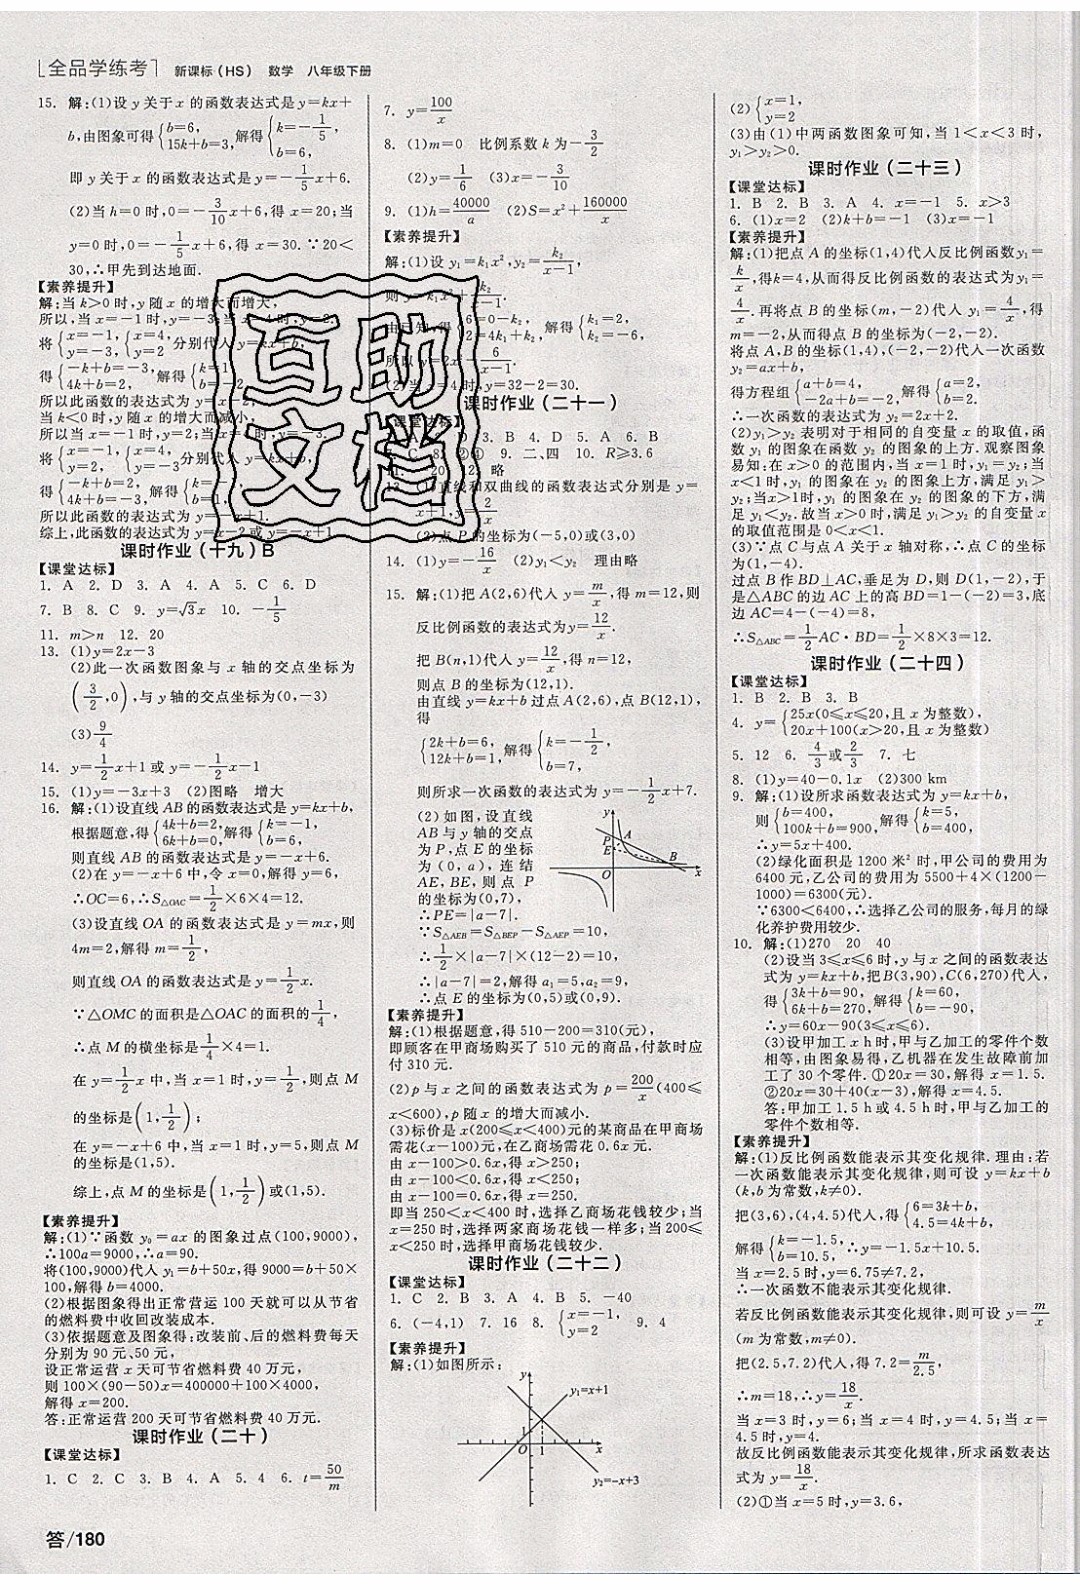 全品学练考 新课标(HS) 数学 八年级下册
15. 解:(1)设y关于x的函数表达式是y=kx+
b,由图象可得{b=6, 15k+b=3, 解得{k=-1/5, b=6,
即y关于x的函数表达式是y=-1/5x+6.
(2)当h=0时,0=-3/10x+6,得x=20;当
y=0时,0=-1/5x+6,得x=30.∵20<
30,∴甲先到达地面.
【素养提升】
解:当k>0时,y随x的增大而增大,
所以,当x=-1时,y=-3;当x=4时,y=2.
将{x=-1, y=-3, {x=4, y=2 分别代入y=kx+b,
得{-k+b=-3, 4k+b=2, 解得{k=1, b=-2,
所以此函数的表达式为y=x-2;
当k<0时,y随x的增大而减小,
所以当x=-1时,y=2;当x=4时,y=-3.
将{x=-1, y=2, {x=4, y=-3 分别代入y=kx+b,
得{-k+b=2, 4k+b=-3, 解得{k=-1, b=1,
所以此函数的表达式为y=-x+1.
综上,此函数的表达式为y=x-2或y=-x+1.
课时作业(十九)B
【课堂达标】
1. A 2. D 3. A 4. A 5. C 6. D
7. B 8. C 9. y=√3x 10. -1/5
11. m>n 12. 20
13. (1)y=2x-3
(2)此一次函数图象与x轴的交点坐标为
(3/2,0),与y轴的交点坐标为(0,-3)
(3)9/4
14. y=1/2x+1或y=-1/2x-1
15. (1)y=-3x+3 (2)图略 增大
16. 解:(1)设直线AB的函数表达式是y=kx+b,
根据题意,得{4k+b=2, 6k+b=0, 解得{k=-1, b=6,
则直线AB的函数表达式是y=-x+6.
(2)在y=-x+6中,令x=0,解得y=6,
∴OC=6,∴S△OAC=1/2×6×4=12.
(3)设直线OA的函数表达式是y=mx,则
4m=2,解得m=1/2,
则直线OA的函数表达式是y=1/2x.
∵△OMC的面积是△OAC的面积的1/4,
∴点M的横坐标是1/4×4=1.
在y=1/2x中,当x=1时,y=1/2,则点M
的坐标是(1,1/2);
在y=-x+6中,当x=1时,y=5,则点M
的坐标是(1,5).
综上,点M的坐标是(1,1/2)或(1,5).
【素养提升】
解:(1)∵函数y₀=ax的图象过点(100,9000),
∴100a=9000,∴a=90.
将(100,9000)代入y₁=b+50x,得9000=b+50×
100,解得b=4000.
(2)根据图象得出正常营运100天就可以从节省
的燃料费中收回改装成本.
(3)依据题意及图象得:改装前、后的燃料费每天
分别为90元、50元,
设正常营运x天可节省燃料费40万元,
则100×(90-50)x=400000+100×4000,
解得x=200.
答:正常运营200天可节省燃料费40万元.
课时作业(二十)
【课堂达标】
1. C 2. C 3. B 4. A 5. 4 6. t=50/m
答/180
7. y=100/x
8. (1)m=0 比例系数k为-3/2
(2)y=1/6 (3)x=-3/10
9. (1)h=40000/a (2)S=x²+160000/x
【素养提升】
解:(1)设y₁=k₁x²,y₂=k₂/(x-1),
则y=k₁x²+k₂/(x-1).
由已知,得{6=0-k₂, 2=4k₁+k₂, 解得{k₁=2, k₂=-6,
所以y=2x²-6/(x-1).
(2)当x=4时,y=32-2=30.
课时作业(二十一)
【课堂达标】
D 3. B 4. D 5. A 6. B
C 8. ②④ 9. 二、四 10. R≥3.6
20 略
直线和双曲线的函数表达式分别是y=
x+1,y=2/x
(2)点P的坐标为(-5,0)或(3,0)
14. (1)y=-16/x (2)y₁<y₂ 理由略
15. 解:(1)把A(2,6)代入y=m/x,得m=12,则
反比例函数的表达式为y=12/x.
把B(n,1)代入y=12/x,得n=12,
则点B的坐标为(12,1).
由直线y=kx+b过点A(2,6),点B(12,1),
得
{2k+b=6, 12k+b=1, 解得{k=-1/2, b=7,
则所求一次函数的表达式为y=-1/2x+7.
(2)如图,设直线
AB与y轴的交点
为P,点E的坐标
为(0,a),连结
AE,BE,则点P
的坐标为(0,7),
∴PE=|a-7|.
y P E A B O x
∵S△AEB=S△BEP-S△AEP=10,
∴1/2×|a-7|×(12-2)=10,
∴|a-7|=2,解得a₁=5,a₂=9,
∴点E的坐标为(0,5)或(0,9).
【素养提升】
解:(1)根据题意,得510-200=310(元),
即顾客在甲商场购买了510元的商品,付款时应
付310元.
(2)p与x之间的函数表达式为p=200/x(400≤
x<600),p随x的增大而减小.
(3)标价是x(200≤x<400)元的某商品在甲商场
需花(x-100)元,在乙商场需花0.6x元.
由x-100>0.6x,得x>250;
由x-100<0.6x,得x<250;
由x-100=0.6x,得x=250.
即当250<x<400时,选择乙商场花钱较少;当
x=250时,选择两家商场花钱一样多;当200≤
x<250时,选择甲商场花钱较少.
课时作业(二十二)
【课堂达标】
1. C 2. B 3. A 4. B 5. -40
6. (-4,1) 7. 16 8. {x=-1, y=2 9. 4
【素养提升】
解:(1)如图所示:
y y₁=x+1 1 O 1 x y₂=-x+3
(2){x=1, y=2
(3)由(1)中两函数图象可知,当1<x<3时,
y₁>y₂>0.
课时作业(二十三)
【课堂达标】
1. B 2. B 3. A 4. x=-1 5. x>3
6. (1)x=2 (2)k+b=-1 (3)x=-1
【素养提升】
解:(1)把点A的坐标(1,4)代入反比例函数y₁=
k/x,得k=4,从而得反比例函数的表达式为y₁=
4/x.再将点B的坐标(m,-2)代入y₁=4/x,得
m=-2,从而得点B的坐标为(-2,-2).
将点A,B的坐标(1,4),(-2,-2)代入一次函数
y₂=ax+b,
得方程组{a+b=4, -2a+b=-2, 解得{a=2, b=2.
∴一次函数的表达式为y₂=2x+2.
(2)y₁>y₂表明对于相同的自变量x的取值,函
数y₁的图象在函数y₂的图象的上方.观察图象
易知:在x>0的范围内,当x=1时,y₁=y₂;当
x<1时,y₁的图象在y₂的图象上方,满足y₁>
y₂;当x>1时,y₁的图象在y₂的图象的下方,满
足y₁<y₂.故当x>0时,满足y₁>y₂的自变量x
的取值范围是0<x<1.
(3)∵点C与点A关于x轴对称,∴点C的坐标
为(1,-4).
过点B作BD⊥AC,垂足为D,则D(1,-2),于
是△ABC的边AC上的高BD=1-(-2)=3,底
边AC=4-(-4)=8,
∴S△ABC=1/2AC·BD=1/2×8×3=12.
课时作业(二十四)
【课堂达标】
1. B 2. B 3. B
4. y={25x(0≤x≤20,且x为整数), 20x+100(x>20,且x为整数)
5. 12 6. 4/3或2/3 7. 七
8. (1)y=40-0.1x (2)300 km
9. 解:(1)设所求函数表达式为y=kx+b,
则{b=400, 100k+b=900, 解得{k=5, b=400,
∴y=5x+400.
(2)绿化面积是1200米²时,甲公司的费用为
6400元,乙公司的费用为5500+4×(1200-
1000)=6300(元).
∵6300<6400,∴选择乙公司的服务,每月的绿
化养护费用较少.
10. 解:(1)270 20 40
(2)设当3≤x≤6时,y与x之间的函数表达
式为y=kx+b,把B(3,90),C(6,270)代入,
得{3k+b=90, 6k+b=270, 解得{k=60, b=-90,
∴y=60x-90(3≤x≤6).
(3)设甲加工x h时,甲与乙加工的零件个数
相等,由图象易得,乙机器在发生故障前加
工了30个零件.①20x=30,解得x=1.5.
②20x=30+40(x-3),解得x=4.5.
答:甲加工1.5 h或4.5 h时,甲与乙加工的
零件个数相等.
【素养提升】
解:(1)反比例函数能表示其变化规律.理由:若
一次函数能表示其变化规律,则可设y=kx+b
(k,b为常数,k≠0).
把(3,6),(4,4.5)代入,得{6=3k+b, 4.5=4k+b,
解得{k=-1.5, b=10.5, ∴y=-1.5x+10.5.
当x=2.5时,y=6.75≠7.2,
∴一次函数不能表示其变化规律.
若反比例函数能表示其变化规律,则可设y=m/x
(m为常数,m≠0).
把(2.5,7.2)代入,得7.2=m/2.5,
∴m=18,∴y=18/x.
当x=3时,y=6;当x=4时,y=4.5;当x=
4.5时,y=4.
故反比例函数能表示其变化规律,所求函数表达
式为y=18/x.
(2)①当x=5时,y=3.6,
互助
文档